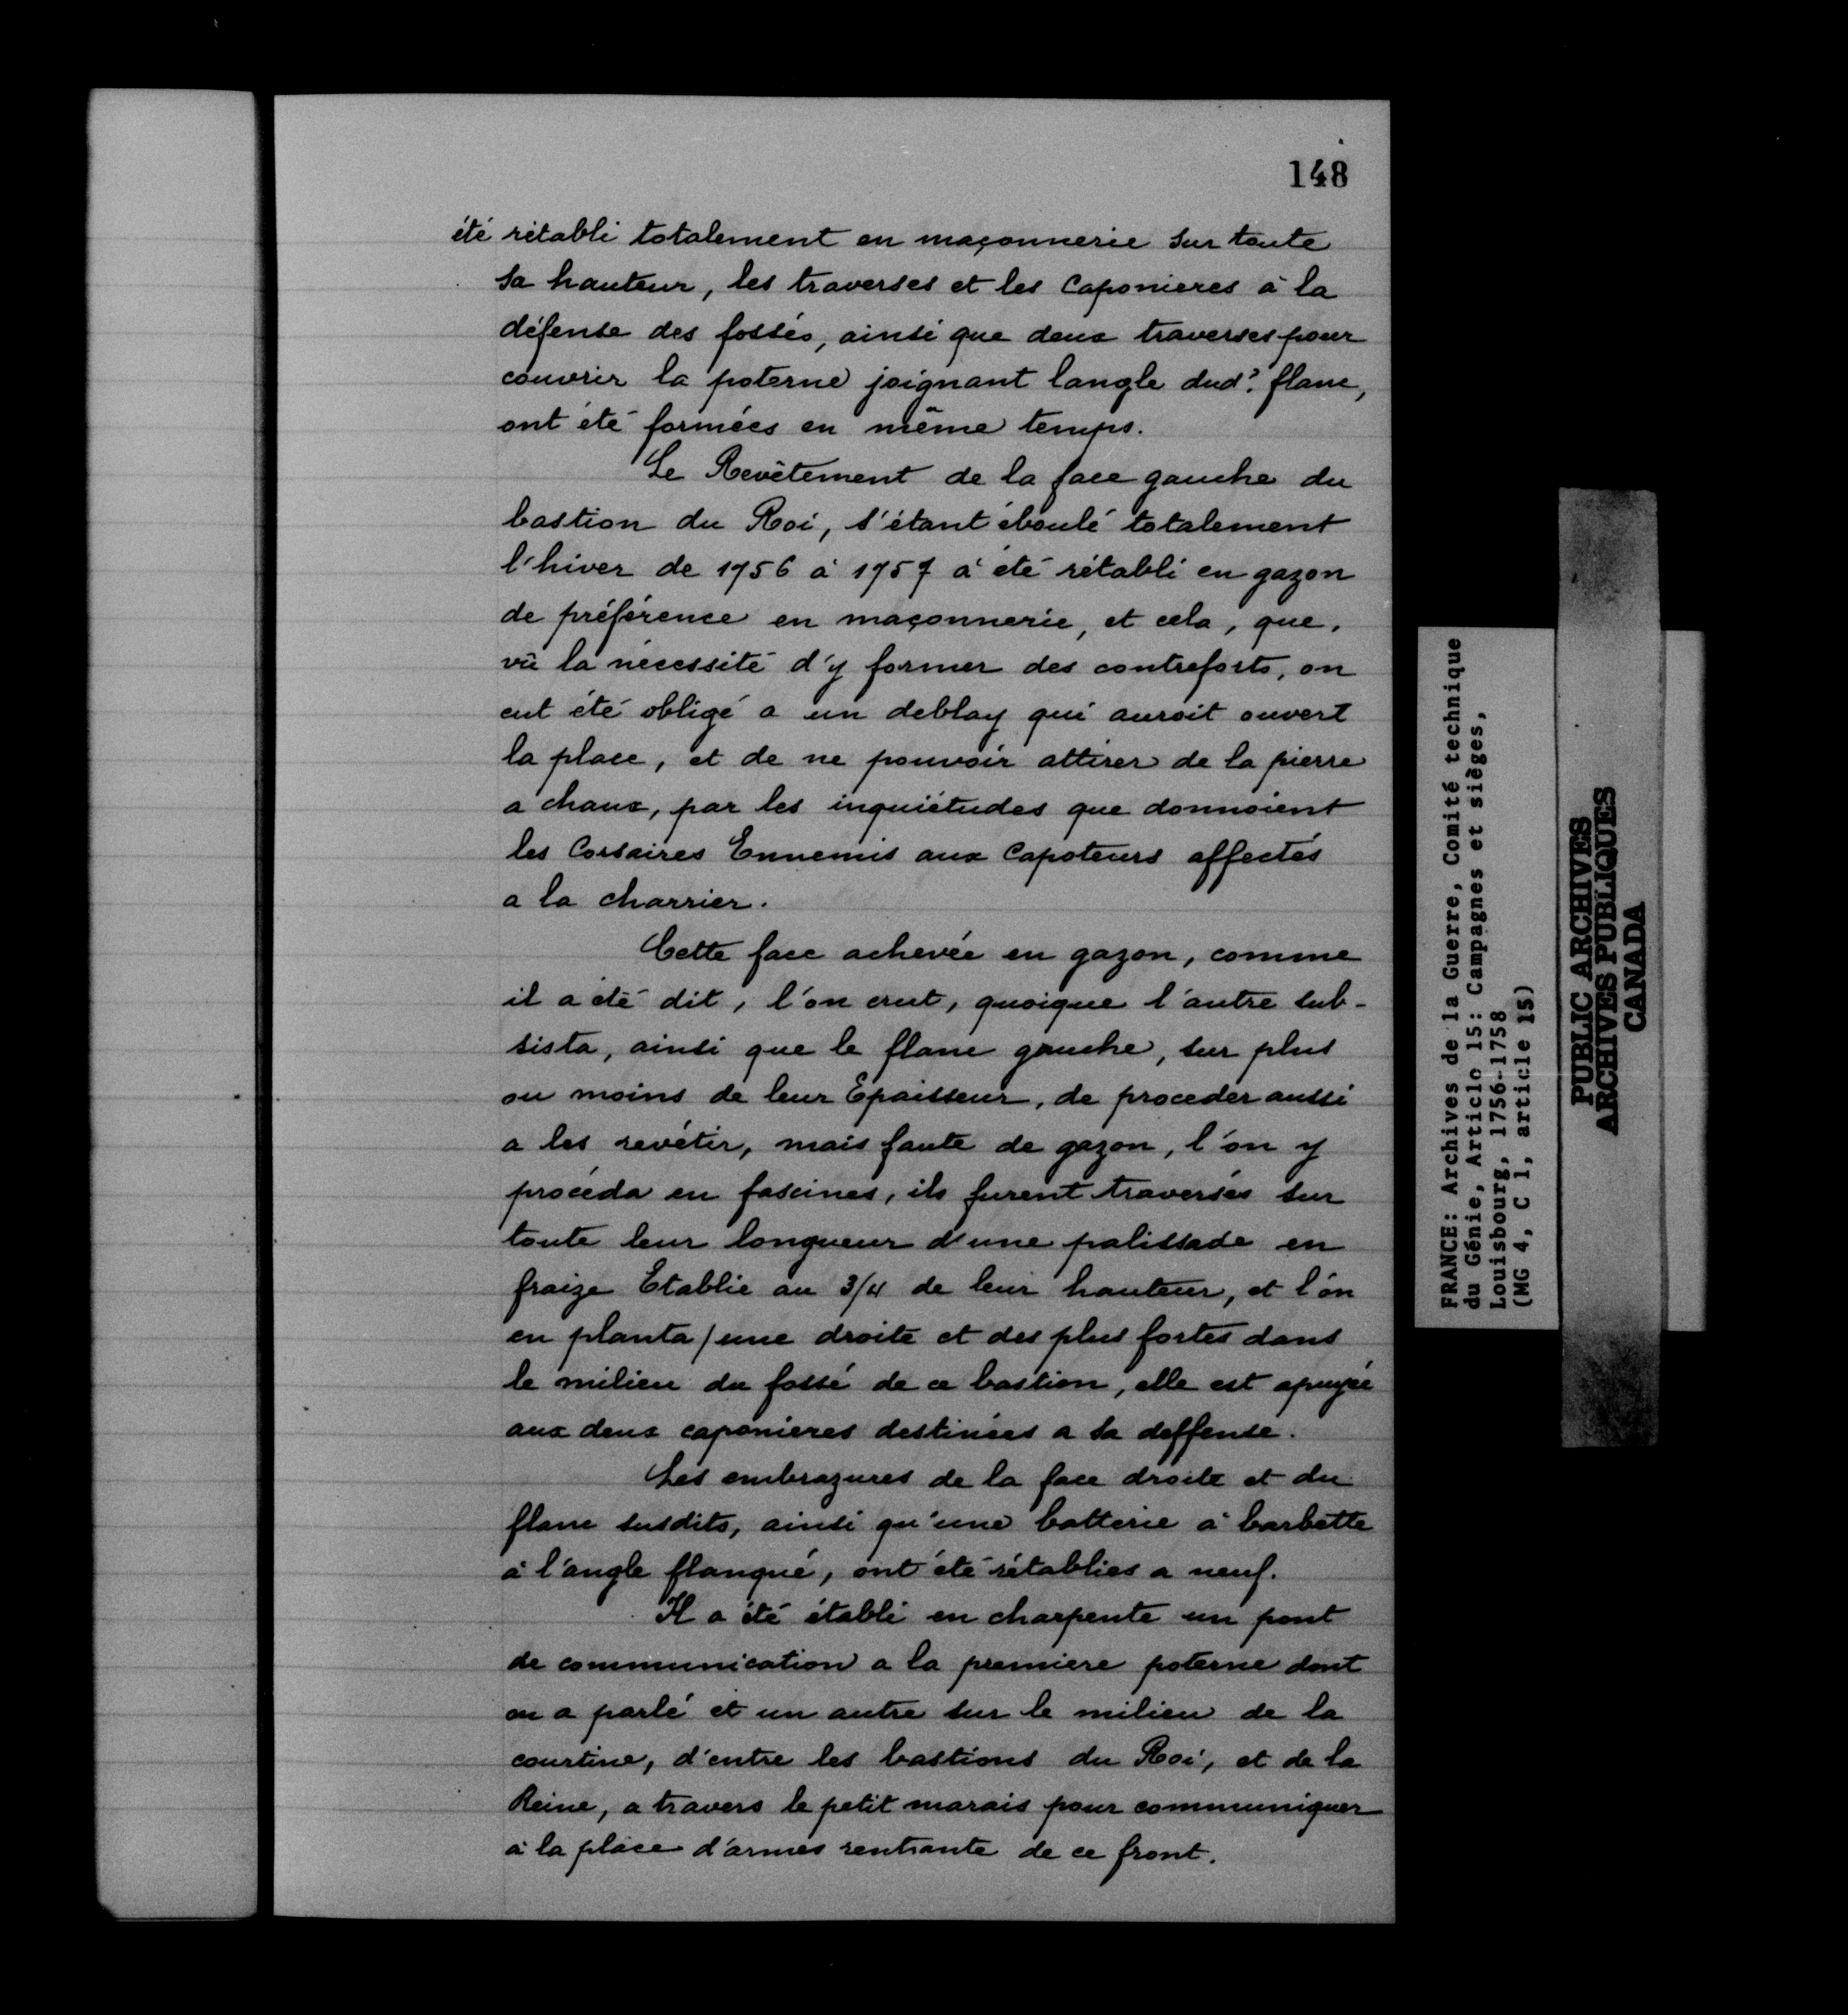 148
été rétabli totalement en maçonnerie sur toute
sa hauteur, les traverses et les Caponieres à la
défense des fossés, ainsi que deux traverses pour
couvrir la poterne joignant langle dud? flanc,
ont été formées en même temps.
Le Revêtement de la face gauche du
bastion du Roi, s'étant éboulé totalement
l'hiver de 1756 à 1757 à été rétabli en gazon
de préférence en maçonnerie, et cela, que,
vû la nécessité d'y former des contreforts, on
eut été obligé a un deblay qui auroit ouvert
la place, et de ne pouvoir attirer de la pierre
a chaux, par les inquiétudes que donnoient
les Corsaires Ennemis aux Capoteurs affectés
a la charrier.
Cette face achevée en gazon, comme
il a été dit, l'on crut, quoique l'autre sub-
sista, ainsi que le flanc gauche, sur plus
ou moins de leur Epaisseur, de proceder aussi
a les revétir, mais faute de gazon, l'on y
procéda en fascines, ils furent traversés sur
toute leur longueur d'une palissade en
fraize Etablie au 3/4 de leur hauteur, et l'on
en planta / une droite et des plus fortes dans
le milieu du fossé de ce bastion, elle est apuyée
aux deux caponieres destinées a sa deffense.
Les embrazures de la face droite et du
flanc susdits, ainsi qu'une batterie à barbette
à l'angle flanqué, ont été rétablies a neuf.
Il a été établi en charpente un pont
de communication a la premiere poterne dont
on a parlé et un autre sur le milieu de la
courtine, d'entre les bastions du Roi, et de la
Reine, a travers le petit marais pour communiquer
à la place d'armes rentrante de ce front.
FRANCE: Archives de la Guerre, Comité technique
du Génie, Article 15: Campagnes et sièges,
Louisbourg, 1756-1758
(MG 4, C 1, article 15)
PUBLIC ARCHIVES
ARCHIVES PUBLIQUES
CANADA